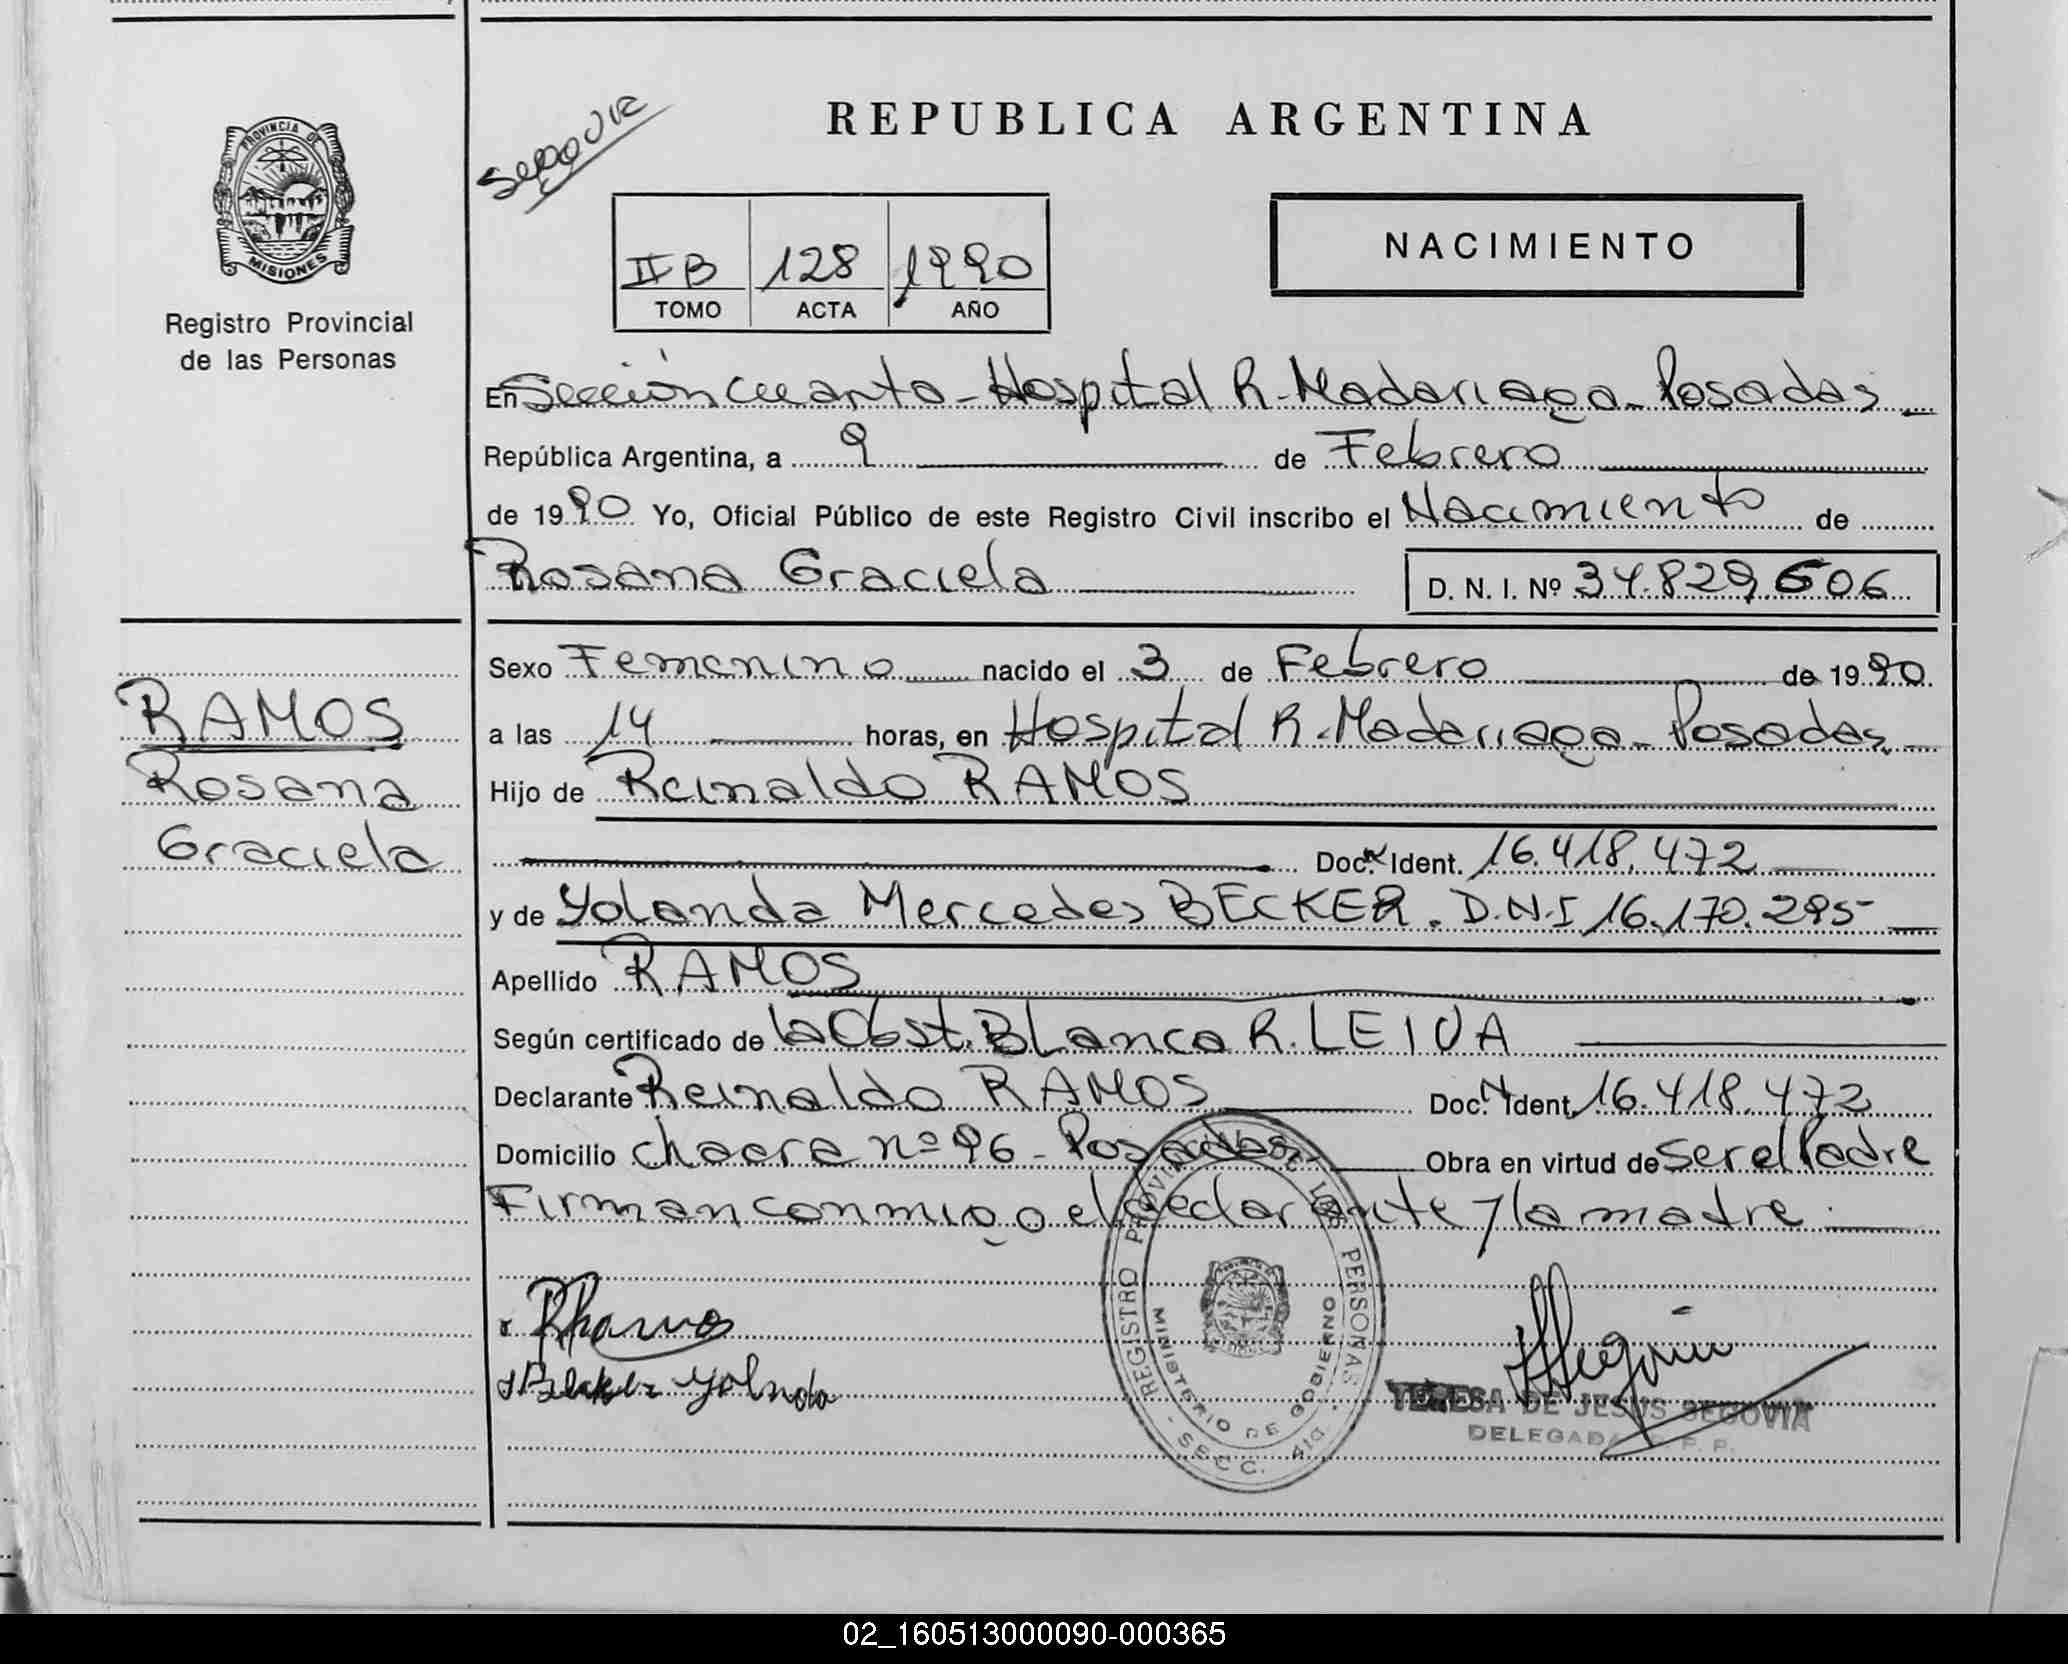 REPUBLICA ARGENTINA
PROVINCIA DE
MISIONES
Registro Provincial
de las Personas
II B 128 1990
TOMO ACTA AÑO
NACIMIENTO
En Sección cuarta - Hospital R. Madariaga - Posadas
República Argentina, a 9 de Febrero
de 1990 Yo, Oficial Público de este Registro Civil inscribo el Nacimiento de
Rosana Graciela D. N. I. Nº 34.829.606
RAMOS
Rosana
Graciela
Sexo Femenino nacido el 3 de Febrero de 1990
a las 14 horas, en Hospital R. Madariaga - Posadas
Hijo de Reinaldo RAMOS
Doc. Ident. 16.418.472
y de Yolanda Mercedes BECKER. D.N.I 16.170.295
Apellido RAMOS
Según certificado de la Obst. Blanca R. LEIVA
Declarante Reinaldo RAMOS Doc. N Ident. 16.418.472
Domicilio chacra nº 96 - Posadas Obra en virtud de ser el Padre
Firman conmigo el declarante y la madre
REGISTRO PROVINCIAL DE LAS PERSONAS
MINISTERIO DE GOBIERNO
SECC. 4ta
Becker Yolanda
TERESA DE JESUS SEGOVIA
DELEGADA R. P. P.
02_160513000090-000365